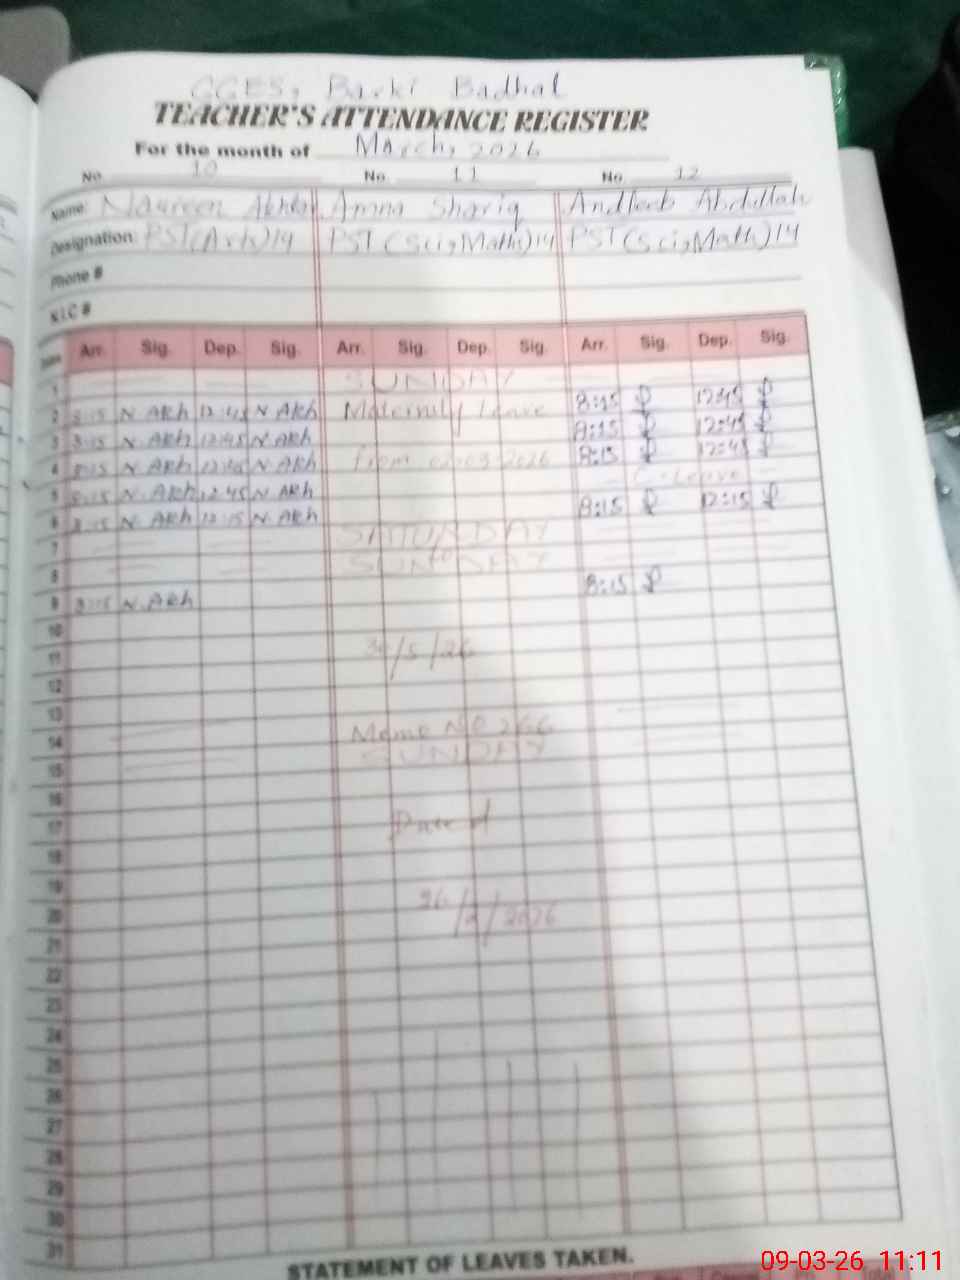 GGES, Barki Badhal
TEACHER'S ATTENDANCE REGISTER
For the month of March, 2026
No. 10 No. 11 No. 12
Name: Naureen Akhtar Amna Shariq Andleeb Abdullah
Designation: PST(Arts)14 PST(Sci,Math)14 PST(Sci,Math)14
Phone #
N.I.C #
Date Arr. Sig. Dep. Sig. Arr. Sig. Dep. Sig. Arr. Sig. Dep. Sig.
1 SUNDAY
2 8:15 N.Akh 12:45 N.Akh Maternity Leave 8:15 12:45
3 8:15 N.Akh 12:45 N.Akh 8:15 12:45
4 8:15 N.Akh 12:45 N.Akh from 02-03-2026 8:15 12:45
5 8:15 N.Akh 12:45 N.Akh C-Leave
6 8:15 N.Akh 12:15 N.Akh 8:15 12:15
7 SATURDAY
8 SUNDAY
9 8:15 N.Akh 8:15
10
11 /5/26
12
13
14 Memo NO 266
15 SUNDAY
16
17 Dated
18
19
20 26/2/2026
21
22
23
24
25
26
27
28
29
30
31
STATEMENT OF LEAVES TAKEN.
09-03-26 11:11